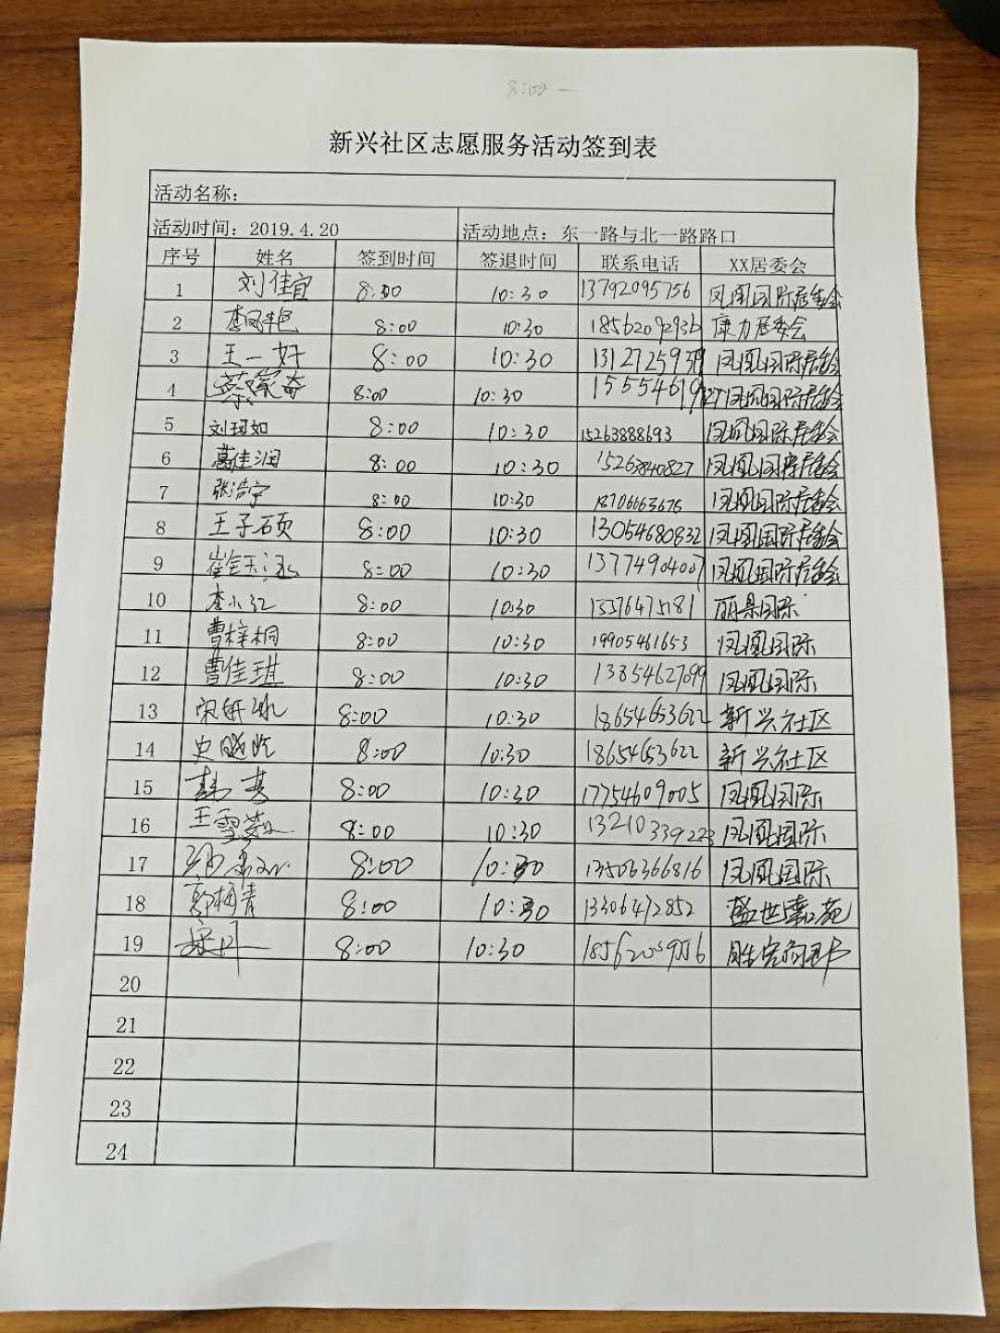 8:00 —
新兴社区志愿服务活动签到表
活动名称:
活动时间: 2019.4.20 活动地点: 东一路与北一路路口
序号 姓名 签到时间 签退时间 联系电话 XX居委会
1 刘佳宜 8:00 10:30 13792095756 凤凰国际居委会
2 李凤艳 8:00 10:30 18562092936 康力居委会
3 王一好 8:00 10:30 凤凰国际居委会
4 蔡家奇 8:00 10:30 凤凰国际居委会
5 刘珂如 8:00 10:30 15263888693 凤凰国际居委会
6 葛佳润 8:00 10:30 15263840827 凤凰国际居委会
7 张浩宇 8:00 10:30 18706663676 凤凰国际居委会
8 王子硕 8:00 10:30 13054680832 凤凰国际居委会
9 8:00 10:30 13774904007 凤凰国际居委会
10 李小红 8:00 10:30 15376475181 丽景国际
11 曹梓桐 8:00 10:30 19905461653 凤凰国际
12 曹佳琪 8:00 10:30 13854627099 凤凰国际
13 8:00 10:30 18654653622 新兴社区
14 8:00 10:30 18654653622 新兴社区
15 8:00 10:30 17754609005 凤凰国际
16 8:00 10:30 13210339223 凤凰国际
17 8:00 10:30 13506366816 凤凰国际
18 郭梅青 8:00 10:30 13306472852 盛世嘉苑
19 8:00 10:30
20
21
22
23
24